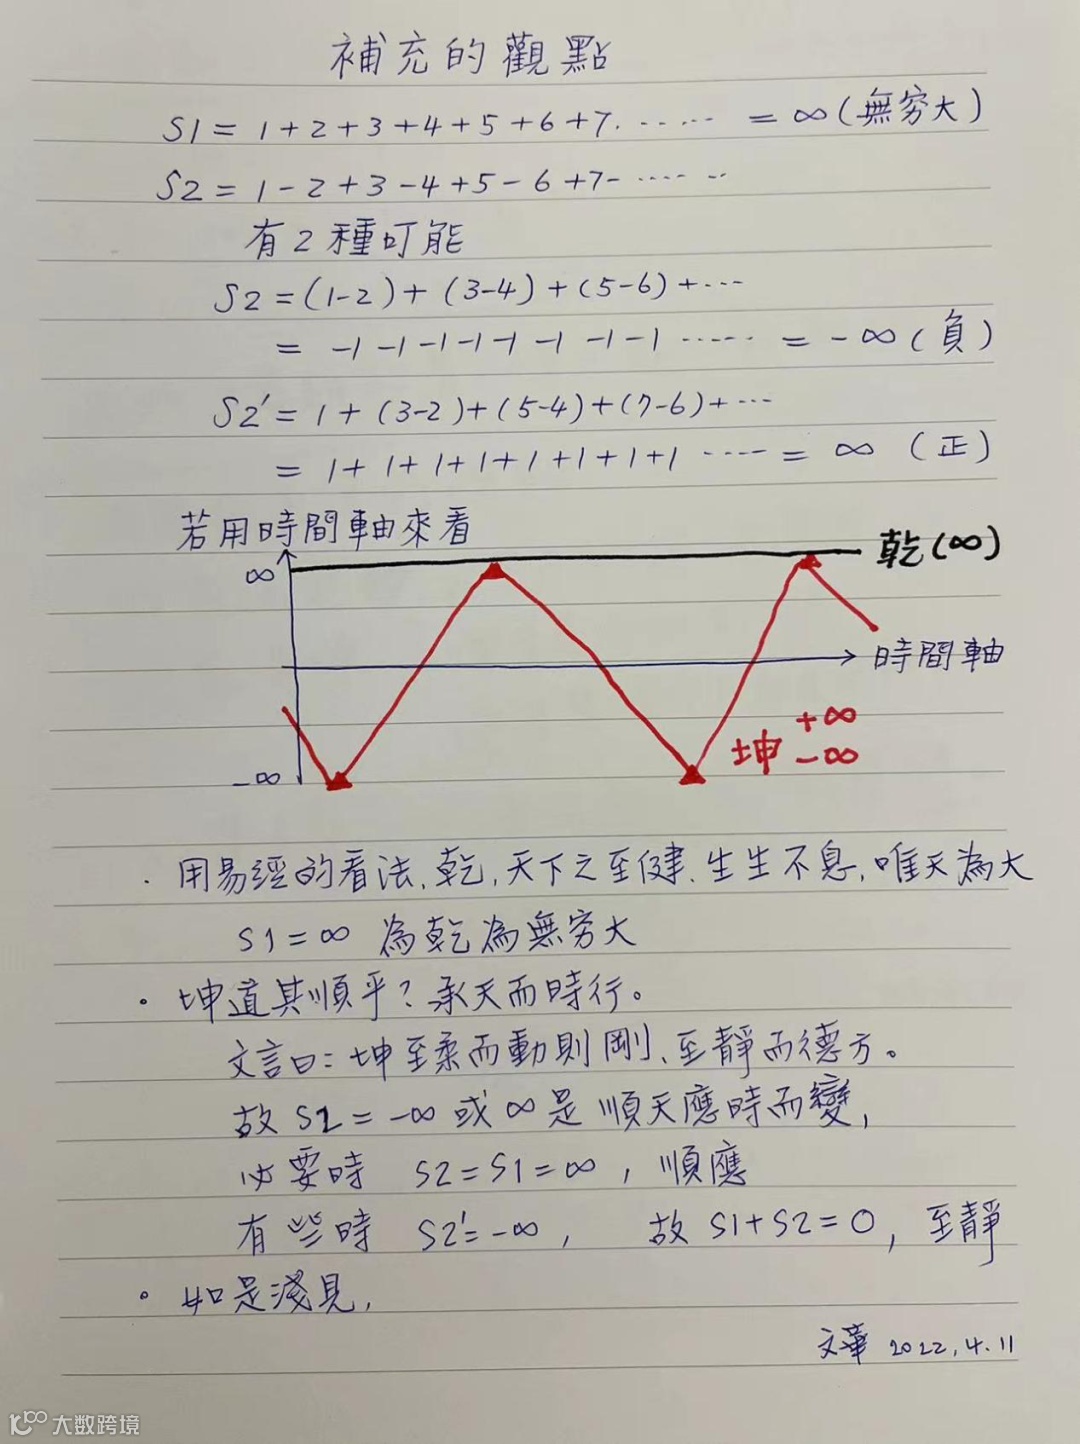 補充的觀點
S1 = 1+2+3+4+5+6+7. ..... = ∞(無穷大)
S2 = 1-2+3-4+5-6+7- ..... ..
有2種可能
S2 = (1-2)+(3-4)+(5-6)+...
= -1-1-1-1-1-1-1-1 ..... = -∞(負)
S2' = 1+(3-2)+(5-4)+(7-6)+...
= 1+1+1+1+1+1+1+1 ..... = ∞ (正)
若用時間軸來看
∞
乾(∞)
時間軸
坤 +∞
-∞
-∞
· 用易經的看法、乾,天下之至健、生生不息,唯天為大
S1=∞ 為乾為無穷大
· 坤道其順乎?承天而時行。
文言曰:坤至柔而動則剛、至靜而德方。
故S2=-∞或∞是順天應時而變,
必要時 S2=S1=∞,順應
有些時 S2'=-∞, 故S1+S2=0,至靜
· 如是淺見,
文華 2022,4.11
大数跨境